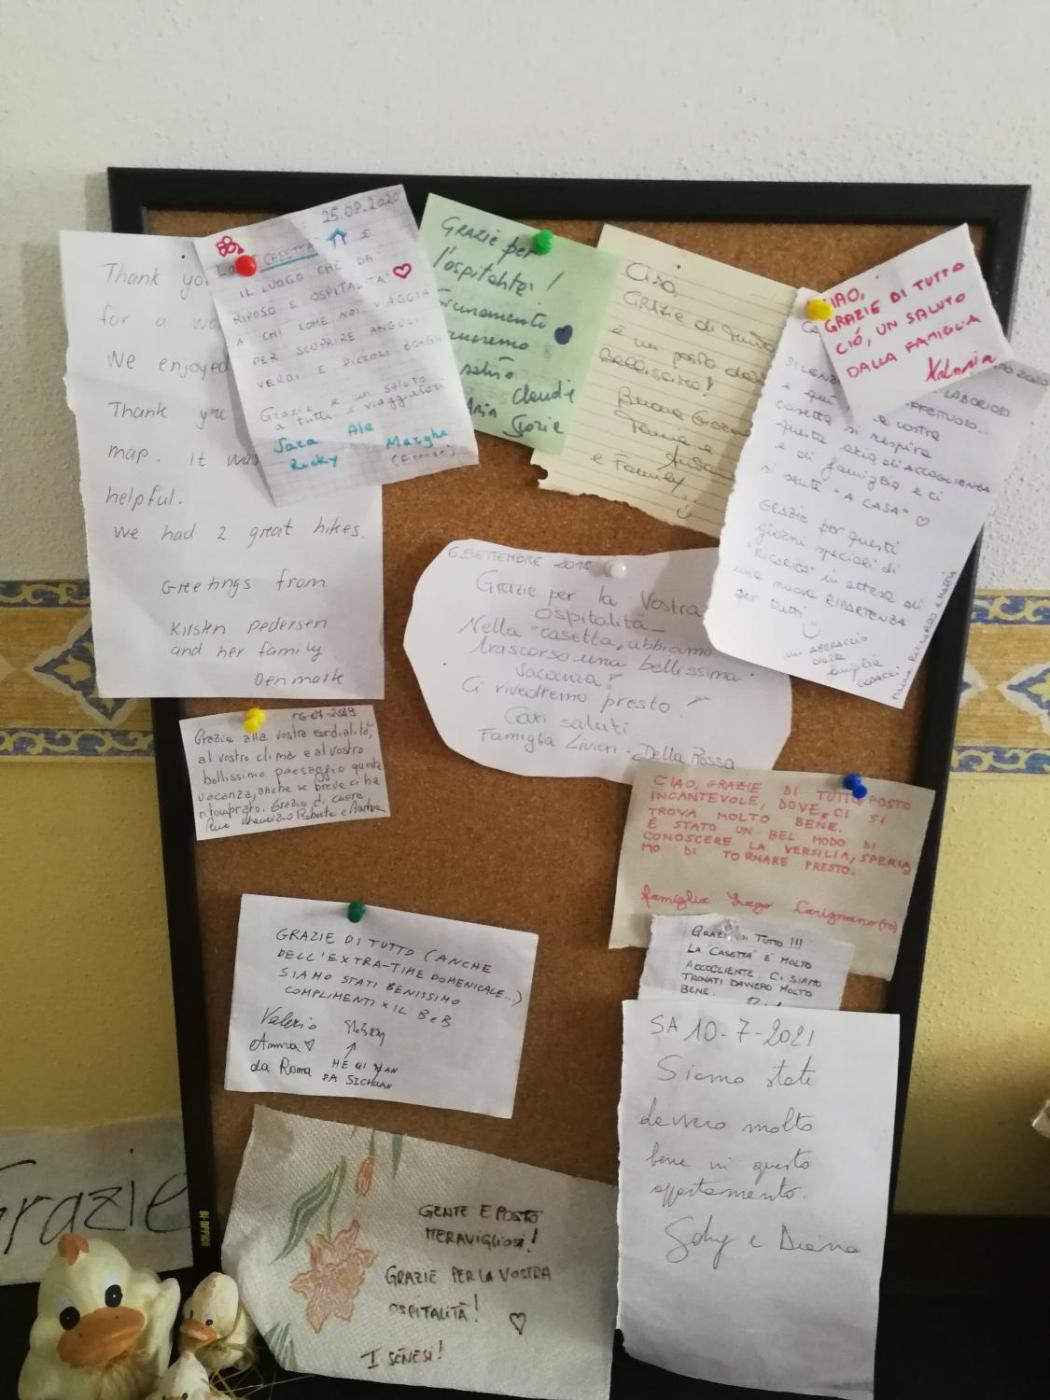 Thank you
for a
We enjoyed
Thank you
map. it was
helpful.
we had 2 great hikes.
Greetings from
Kirsten Pedersen
and her family
Denmark
25.08.2020
CASETTA È
IL LUOGO CHE DÀ
RIPOSO E OSPITALITÀ
A CHI COME NOI VIAGGIA
PER SCOPRIRE ANGOLI
VERDI E PICCOLI BORGHI
Grazie e un saluto
a tutti i viaggiatori
Sara Ale Marghe
Ricky
GRAZIE per
l'ospitalità!
Claudia
Grazie
Ciao,
GRAZIE di tutto
è un posto
Bellissimo!
e Family
CIAO,
GRAZIE DI TUTTO
CIÓ, UN SALUTO
DALLA FAMIGLIA
LABORIOSO
casetta si respira
questa aria di ACCOGLIENZA
e di famiglia e ci
si sente "A CASA" ♡
GRAZIE per questi
giorni speciali di
"RICARICA" in attesa di
una nuova RIPARTENZA
per tutti
un ABBRACCIO
dalla
famiglia
6 SETTEMBRE 2015
Grazie per la Vostra
ospitalità_
Nella "casetta" abbiamo
trascorso una bellissima
vacanza!
Ci rivedremo presto!
Cari saluti
Famiglia Livieri - Della Rossa
16-07-2019
Grazie alla vostra cordialità,
al vostro clima e al vostro
bellissimo paesaggio questa
vacanza, anche se breve ci ha
ritemprato. Grazie di cuore,
CIAO, GRAZIE DI TUTTO, POSTO
INCANTEVOLE, DOVE CI SI
TROVA MOLTO BENE.
È STATO UN BEL MODO DI
CONOSCERE LA VERSILIA, SPERIA
MO DI TORNARE PRESTO.
famiglia Lugo Carignano (TO)
GRAZIE DI TUTTO !!!
LA CASETTA È MOLTO
ACCOGLIENTE. CI SIAMO
TROVATI DAVVERO MOLTO
BENE.
GRAZIE DI TUTTO (ANCHE
DELL'EXTRA-TIME DOMENICALE...)
SIAMO STATI BENISSIMO
COMPLIMENTI X IL B&B
Valerio
Anna ♡
da Roma
HE QI YAN
DA SICHUAN
SA 10-7-2021
Siamo state
davvero molto
bene in questo
appartamento.
Gaby e Diana
GENTE E POSTO
MERAVIGLIOSI!
GRAZIE PER LA VOSTRA
OSPITALITÀ! ♡
I SENESI!
Grazie